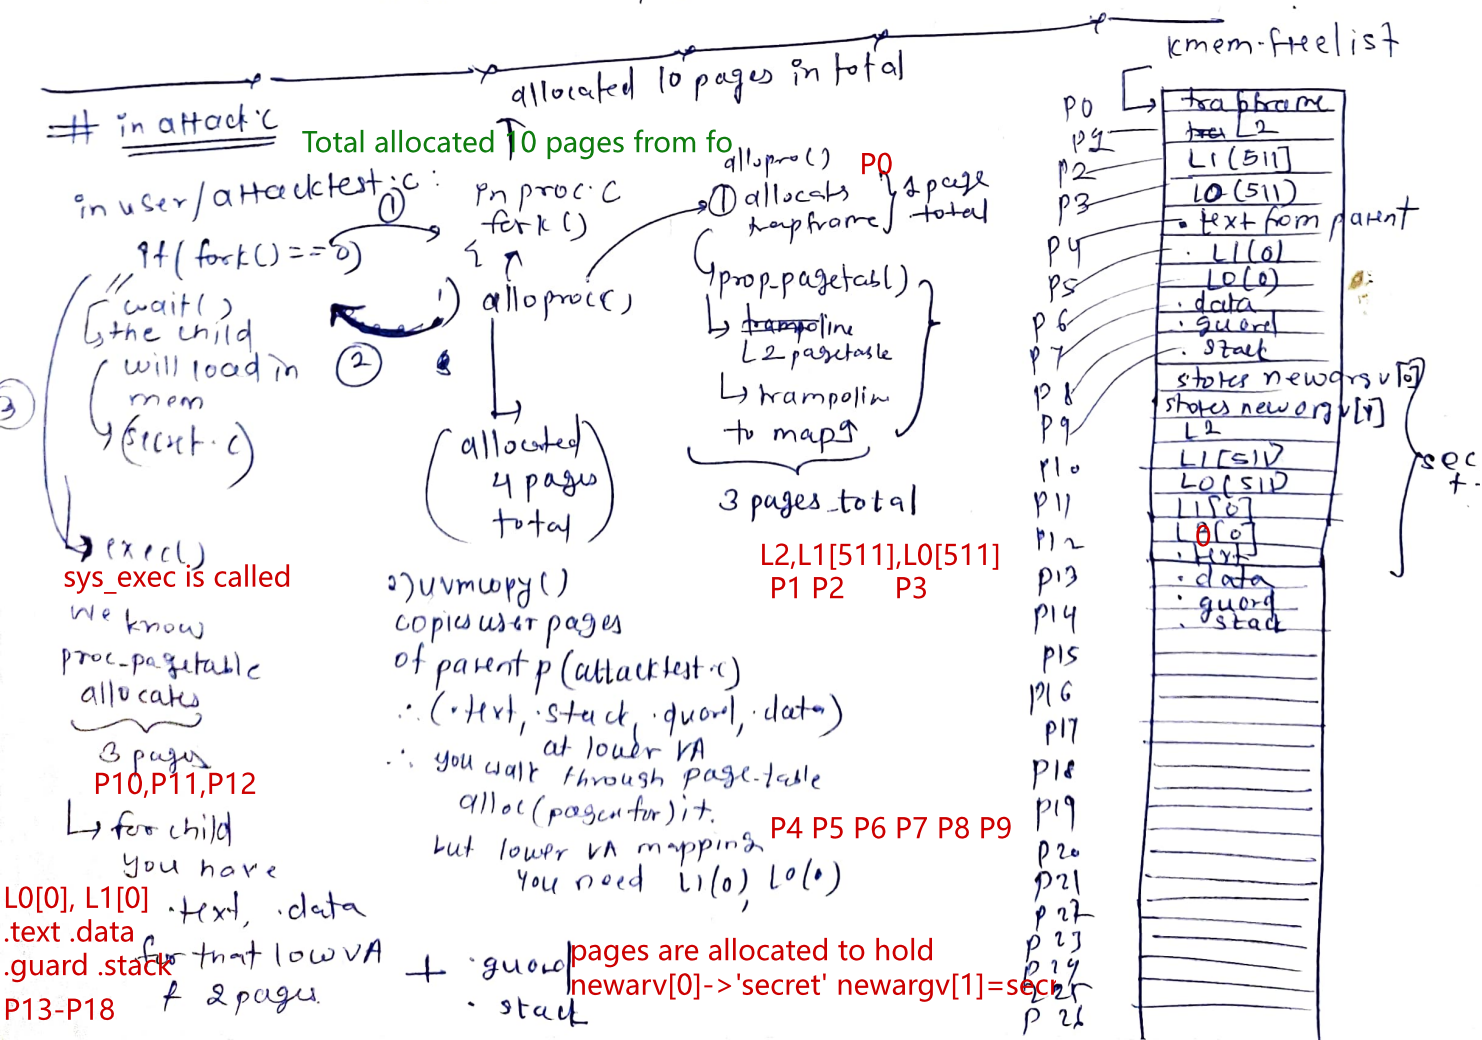 allocated 10 pages in total
kmem.freelist
# in attack.c
Total allocated 10 pages from fo
in user/attacktest.c:
①
if(fork()==0)
wait()
the child
will load in
mem
(secret.c)
②
3
exec()
sys_exec is called
we know
proc_pagetable
allocates
3 pages
P10,P11,P12
for child
you have
L0[0], L1[0]
.text .data
.guard .stack
P13-P18
.text, .data
for that low VA
& 2 pages.
+ .guard
.stack
in proc.c
fork()
{
1) alloproc()
(allocated
4 pages
total)
2) uvmcopy()
copies user pages
of parent p (attacktest.c)
∴ (.text, .stack, .guard, .data)
at lower VA
∴ you walk through page-table
alloc(pagen for) it.
but lower VA mapping
P4 P5 P6 P7 P8 P9
you need L1(0), L0(0)
pages are allocated to hold
newarv[0]->'secret' newargv[1]=secr
alloproc()
P0
① allocats
trapframe
1 page
total
prop-pagetabl()
trampoline
L2 pagetable
trampolin
to map
3 pages total
L2,L1[511],L0[511]
P1 P2 P3
P0
P1
P2
P3
P4
P5
P6
P7
P8
P9
P10
P11
P12
P13
P14
P15
P16
P17
P18
P19
P20
P21
P22
P23
P24
P25
P26
trapframe
L2
L1(511]
L0(511)
.text from parent
. L1(0)
L0(0)
.data
.guard
.stack
stores newargv[0]
stores newargv[1]
L2
L1[511)
L0(511)
L1[0]
L0[0]
.text
.data
.guard
.stack
sec